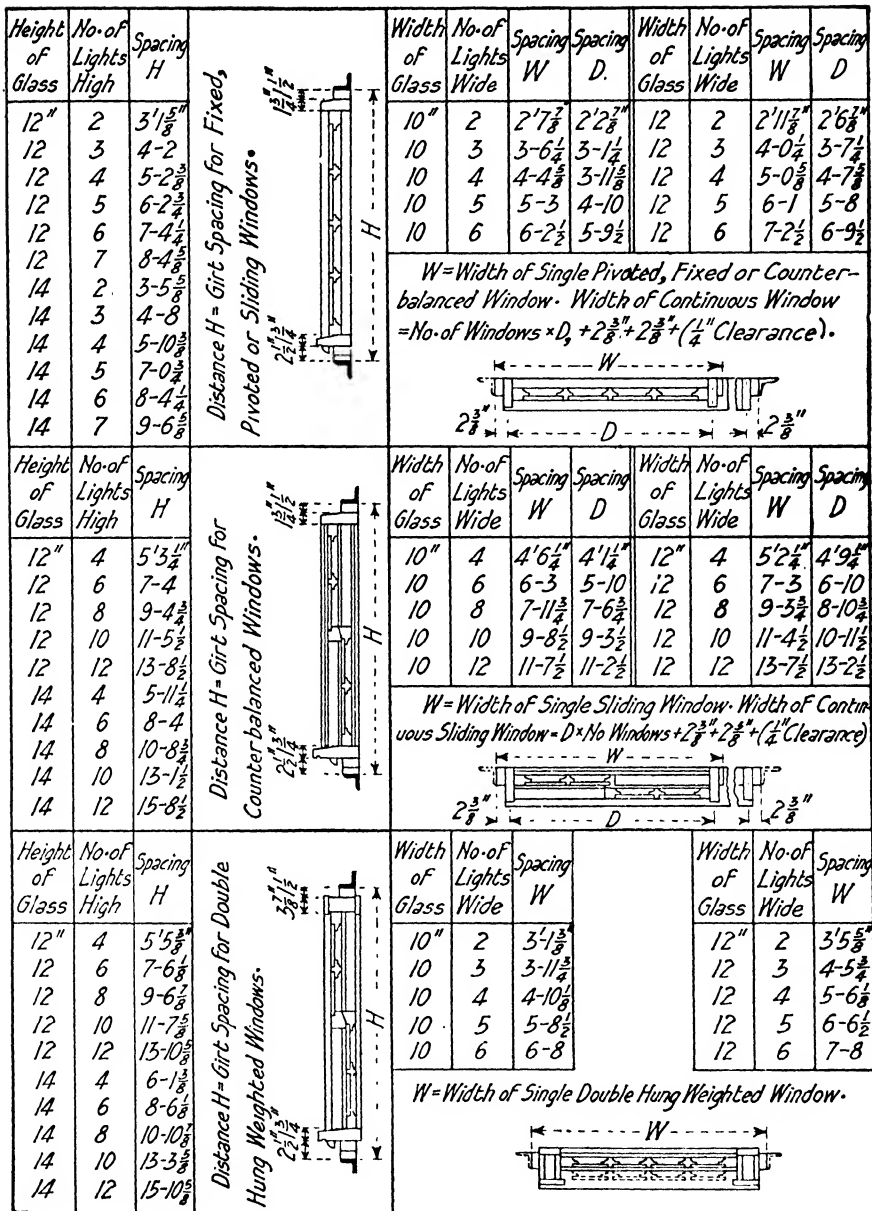 Height of Glass | No. of Lights High | Spacing H
12" | 2 | 3'1 5/8"
12 | 3 | 4-2
12 | 4 | 5-2 3/8
12 | 5 | 6-2 3/4
12 | 6 | 7-4 1/4
12 | 7 | 8-4 5/8
14 | 2 | 3-5 5/8
14 | 3 | 4-8
14 | 4 | 5-10 3/8
14 | 5 | 7-0 3/4
14 | 6 | 8-4 1/4
14 | 7 | 9-6 5/8
Distance H = Girt Spacing for Fixed,
Pivoted or Sliding Windows.
1 3/4" 1/2"
H
2 1/2" 3/4"
Width of Glass | No. of Lights Wide | Spacing W | Spacing D. | Width of Glass | No. of Lights Wide | Spacing W | Spacing D
10" | 2 | 2'7 7/8" | 2'2 7/8" | 12 | 2 | 2'11 7/8" | 2'6 7/8"
10 | 3 | 3-6 1/4 | 3-1 1/4 | 12 | 3 | 4-0 1/4 | 3-7 1/4
10 | 4 | 4-4 5/8 | 3-11 5/8 | 12 | 4 | 5-0 5/8 | 4-7 5/8
10 | 5 | 5-3 | 4-10 | 12 | 5 | 6-1 | 5-8
10 | 6 | 6-2 1/2 | 5-9 1/2 | 12 | 6 | 7-2 1/2 | 6-9 1/2
W = Width of Single Pivoted, Fixed or Counter-
balanced Window. Width of Continuous Window
= No. of Windows × D, + 2 3/8" + 2 3/8" + (1/4" Clearance).
W
2 3/8" D 2 3/8"
Height of Glass | No. of Lights High | Spacing H
12" | 4 | 5'3 1/4"
12 | 6 | 7-4
12 | 8 | 9-4 3/4
12 | 10 | 11-5 1/2
12 | 12 | 13-8 1/2
14 | 4 | 5-11 1/4
14 | 6 | 8-4
14 | 8 | 10-8 3/4
14 | 10 | 13-1 1/2
14 | 12 | 15-8 1/2
Distance H = Girt Spacing for
Counterbalanced Windows.
1 3/4" 1/2"
H
2 1/2" 3/4"
Width of Glass | No. of Lights Wide | Spacing W | Spacing D | Width of Glass | No. of Lights Wide | Spacing W | Spacing D
10" | 4 | 4'6 1/4" | 4'1 1/4" | 12" | 4 | 5'2 1/4" | 4'9 1/4"
10 | 6 | 6-3 | 5-10 | 12 | 6 | 7-3 | 6-10
10 | 8 | 7-11 3/4 | 7-6 3/4 | 12 | 8 | 9-3 3/4 | 8-10 3/4
10 | 10 | 9-8 1/2 | 9-3 1/2 | 12 | 10 | 11-4 1/2 | 10-11 1/2
10 | 12 | 11-7 1/2 | 11-2 1/2 | 12 | 12 | 13-7 1/2 | 13-2 1/2
W = Width of Single Sliding Window. Width of Contin-
uous Sliding Window = D × No Windows + 2 3/8" + 2 3/8" + (1/4" Clearance)
W
2 3/8" D 2 3/8"
Height of Glass | No. of Lights High | Spacing H
12" | 4 | 5'5 3/8"
12 | 6 | 7-6 1/8
12 | 8 | 9-6 7/8
12 | 10 | 11-7 5/8
12 | 12 | 13-10 5/8
14 | 4 | 6-1 3/8
14 | 6 | 8-6 1/8
14 | 8 | 10-10 7/8
14 | 10 | 13-3 5/8
14 | 12 | 15-10 5/8
Distance H = Girt Spacing for Double
Hung Weighted Windows.
3 7/8" 1/2"
H
2 1/2" 3/4"
Width of Glass | No. of Lights Wide | Spacing W
10" | 2 | 3'-1 3/8"
10 | 3 | 3-11 3/4
10 | 4 | 4-10 1/8
10 | 5 | 5-8 1/2
10 | 6 | 6-8
Width of Glass | No. of Lights Wide | Spacing W
12" | 2 | 3'5 5/8"
12 | 3 | 4-5 3/4
12 | 4 | 5-6 1/8
12 | 5 | 6-6 1/2
12 | 6 | 7-8
W = Width of Single Double Hung Weighted Window.
W